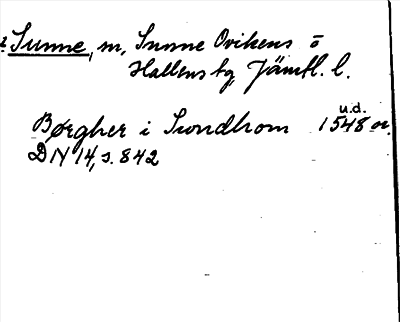 Sunne, m, Sunne Ovikens o
Hallens tg, Jämtl. l.
u.d.
Børgher i Swndhom 1548 or.
DN 14, s. 842